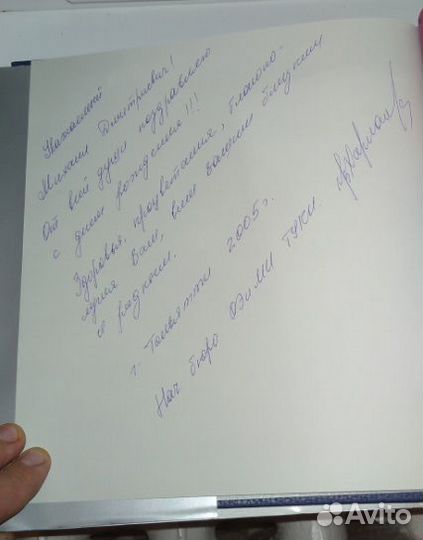 Уважаемый
Михаил Дмитриевич!
От всей души поздравляю
с днем рождения!!!
Здоровья, процветания, благопо-
лучия Вам, всем вашим близким
и родным.
г. Тольятти 2005г.
Нач бюро ОЭиМИ
Avito